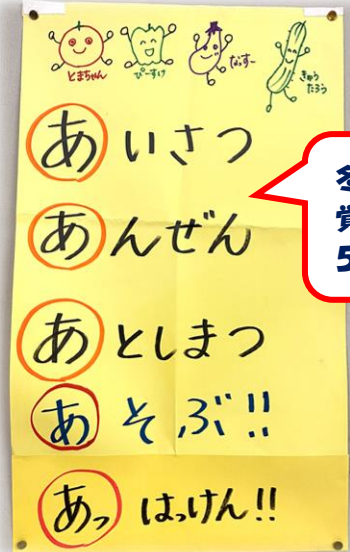 とまちゃん
ぴーすけ
なっすー
きゅうたろう
あいさつ
あんぜん
あとしまつ
あそぶ!!
あっはっけん!!